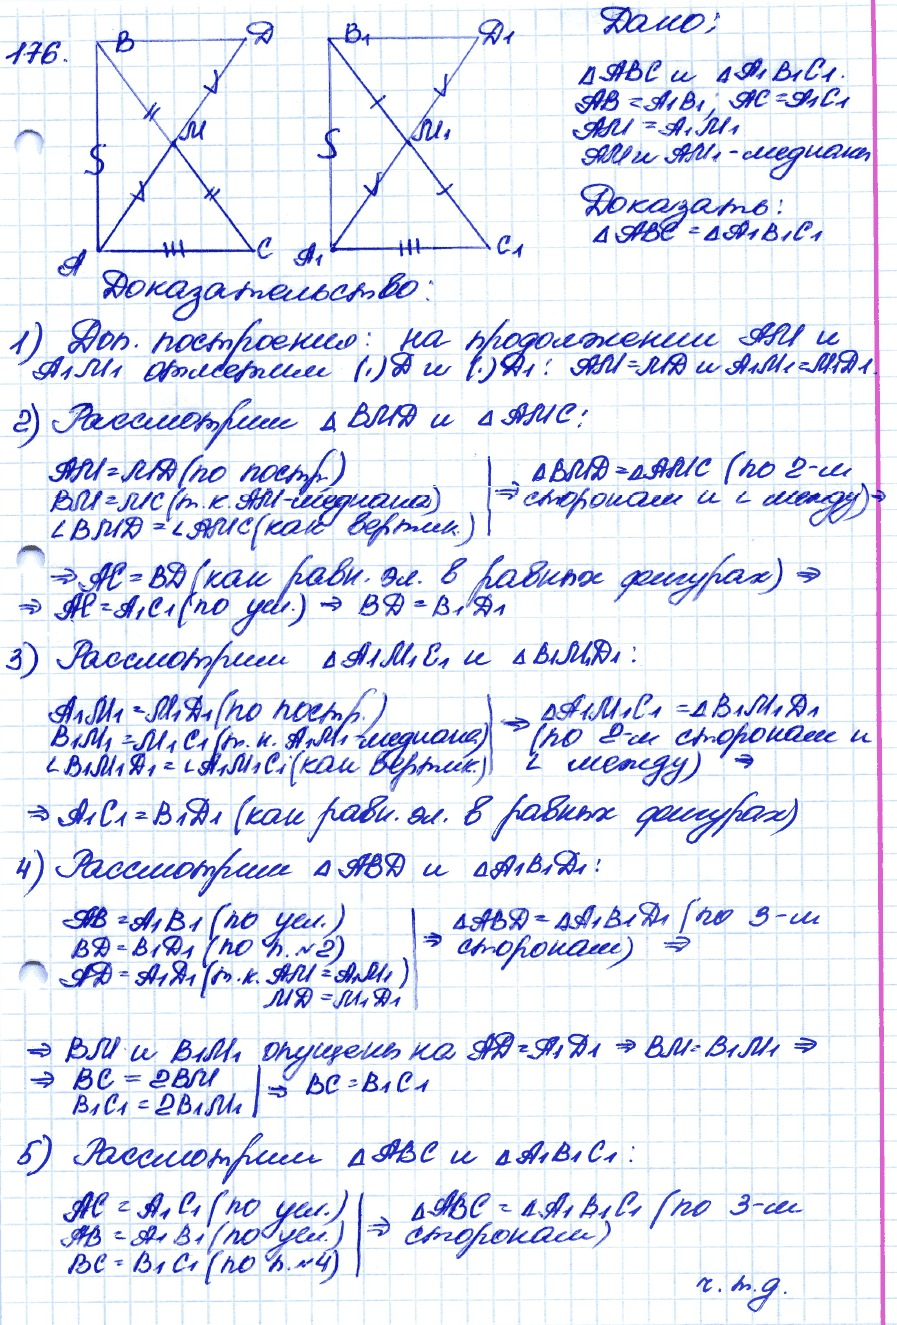 176.
B
D
M
A
C
B₁
D₁
M₁
A₁
C₁
Дано:
△ABC и △A₁B₁C₁.
AB = A₁B₁; AC = A₁C₁
AM = A₁M₁
AM и AM₁ - медианы
Доказать:
△ABC = △A₁B₁C₁
Доказательство:
1) Доп. построения: на продолжении AM и
A₁M₁ отметим (.) D и (.) D₁: AM = MD и A₁M₁ = M₁D₁.
2) Рассмотрим △BMD и △AMC:
AM = MD (по постр.)
BM = MC (т.к. AM - медиана)
∠BMD = ∠AMC (как вертик.)
⇒ △BMD = △AMC (по 2-м
сторонам и ∠ между) ⇒
⇒ AC = BD (как равн. эл. в равных фигурах) ⇒
⇒ AC = A₁C₁ (по усл.) ⇒ BD = B₁D₁
3) Рассмотрим △A₁M₁C₁ и △B₁M₁D₁:
A₁M₁ = M₁D₁ (по постр.)
B₁M₁ = M₁C₁ (т.к. A₁M₁ - медиана)
∠B₁M₁D₁ = ∠A₁M₁C₁ (как вертик.)
⇒ △A₁M₁C₁ = △B₁M₁D₁
(по 2-м сторонам и
∠ между) ⇒
⇒ A₁C₁ = B₁D₁ (как равн. эл. в равных фигурах)
4) Рассмотрим △ABD и △A₁B₁D₁:
AB = A₁B₁ (по усл.)
BD = B₁D₁ (по п. №2)
AD = A₁D₁ (т.к. AM = A₁M₁)
MD = M₁D₁
⇒ △ABD = △A₁B₁D₁ (по 3-м
сторонам) ⇒
⇒ BM и B₁M₁ опущены на AD = A₁D₁ ⇒ BM = B₁M₁ ⇒
⇒ BC = 2BM
B₁C₁ = 2B₁M₁
⇒ BC = B₁C₁
5) Рассмотрим △ABC и △A₁B₁C₁:
AC = A₁C₁ (по усл.)
AB = A₁B₁ (по усл.)
BC = B₁C₁ (по п. №4)
⇒ △ABC = △A₁B₁C₁ (по 3-м
сторонам)
ч.т.д.